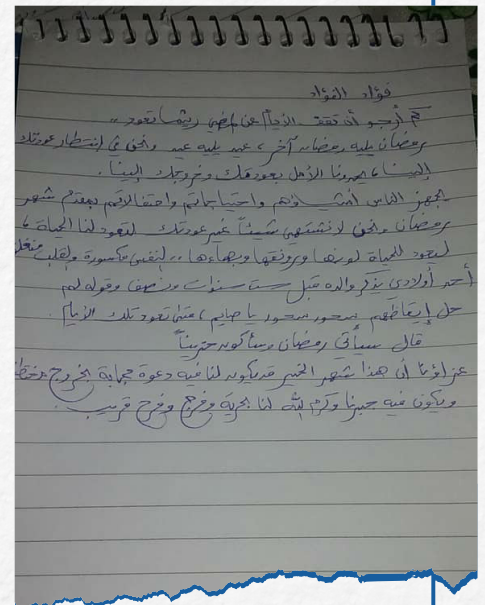 فؤاد الفؤاد
كم أرجو أن تقف الأيام عن المضي ريثما تعود ..
رمضان يليه رمضان آخر ، عيد يليه عيد ونحن في إنتظار عودتك
إلينا ، يحدونا الأمل بعودتك وخروجك إلينا .
يجهز الناس أمتعتهم واحتياجاتهم واحتفالاتهم بمقدم شهر
رمضان ونحن لا نشتهي شيئاً غير عودتك لتعود لنا الحياة ،
لتعود للحياة لونها ورونقها وبهاءها .. النفس مكسورة والقلب
أحد أولادي يذكر والده قبل ست سنوات ونصف وقوله لهم
حل إيقاظهم سحور سحور يا صايم ، متى تعود تلك الأيام
قال سيأتي رمضان وسأكون حزيناً
عزاؤنا أن هذا شهر الخير قد يكون لنا فيه دعوة مجابة بخروج
ويكون فيه جبرنا وكرم الله لنا بحرية وفرج وفرح قريب .